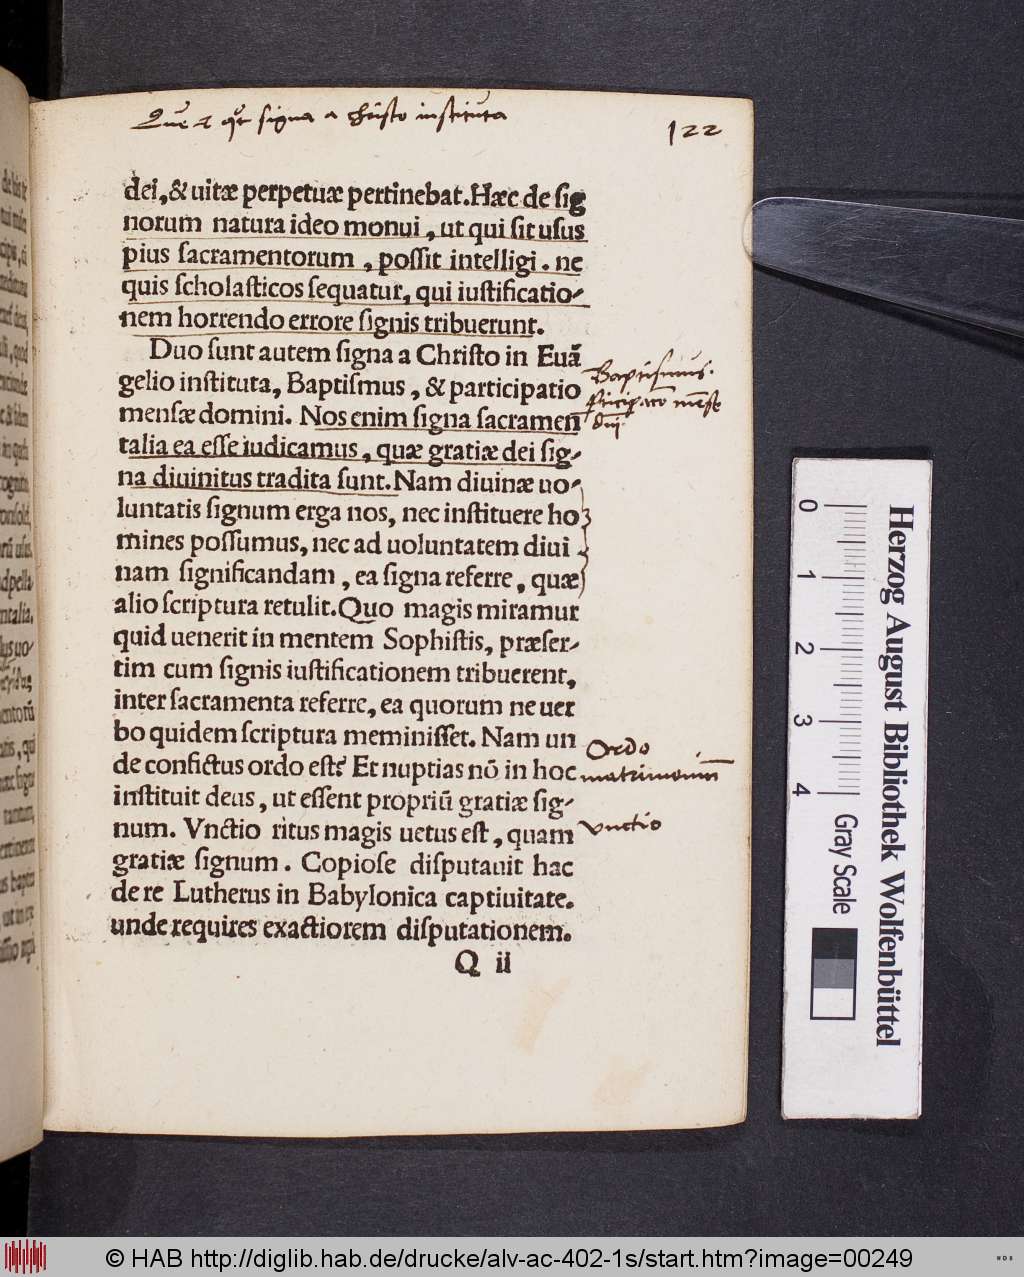 Que et qͦt signa a christo instituta
122
dei, & uitæ perpetuæ pertinebat. Hæc de ſig
norum natura ideo monui, ut qui ſit uſus
pius ſacramentorum, poſſit intelligi. ne
quis ſcholaſticos ſequatur, qui iuſtificatio⸗
nem horrendo errore ſignis tribuerunt.
Duo ſunt autem ſigna a Chriſto in Euã
gelio inſtituta, Baptiſmus, & participatio
menſæ domini. Nos enim ſigna ſacramen
talia ea eſſe iudicamus, quæ gratiæ dei ſig⸗
na diuinitus tradita ſunt. Nam diuinæ uo⸗
luntatis ſignum erga nos, nec inſtituere ho
mines poſſumus, nec ad uoluntatem diui
nam ſignificandam, ea ſigna referre, quæ
alio ſcriptura retulit. Quo magis miramur
quid uenerit in mentem Sophiſtis, præſer⸗
tim cum ſignis iuſtificationem tribuerent,
inter ſacramenta referre, ea quorum ne uer
bo quidem ſcriptura meminiſſet. Nam un
de confictus ordo eſt? Et nuptias nō in hoc
inſtituit deus, ut eſſent propriũ gratiæ ſig⸗
num. Vnctio ritus magis uetus eſt, quam
gratiæ ſignum. Copioſe diſputauit hac
de re Lutherus in Babylonica captiuitate.
unde requires exactiorem diſputationem.
Q ii
Baptismus.
dnī
Ordo
matrimonium
vnctio
0 1 2 3 4
Herzog August Bibliothek Wolfenbüttel
Gray Scale
© HAB http://diglib.hab.de/drucke/alv-ac-402-1s/start.htm?image=00249